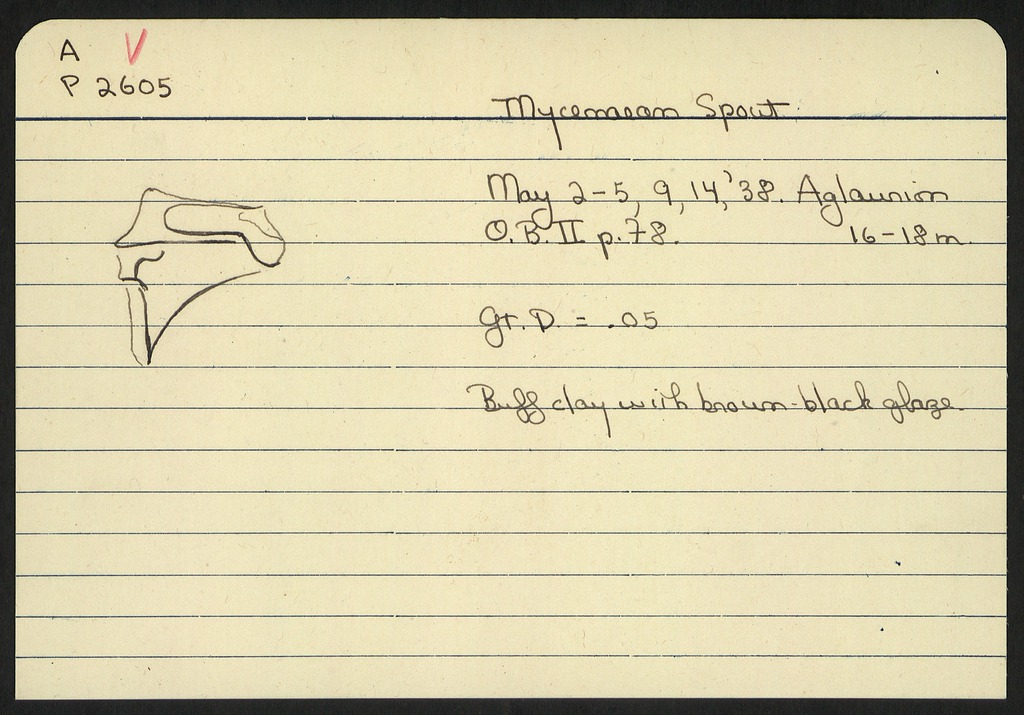 A V
P 2605
Mycenaean Spout.
May 2-5, 9, 14, '38. Aglaurion
O.B. II p. 78. 16-18 m.
Gr. D. = .05
Buff clay with brown-black glaze.